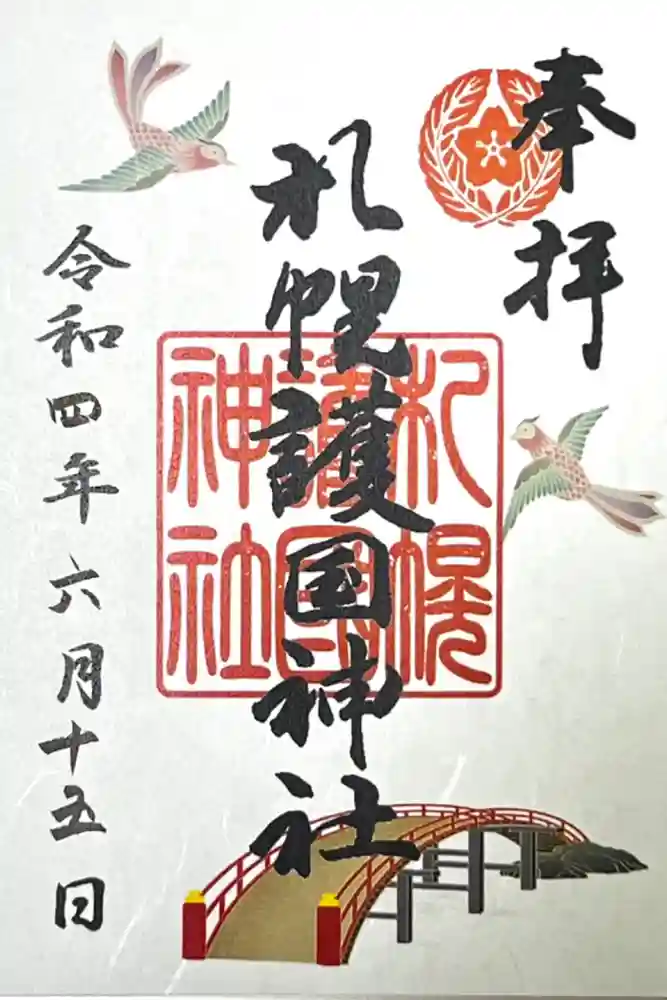 奉拝
札幌護国神社
札幌
護国
神社
令和四年六月十五日